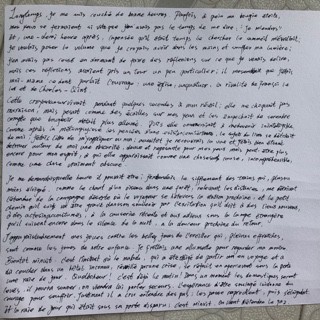 Longtemps, je me suis couché de bonne heure. Parfois, à peine ma bougie éteinte,
mes yeux se fermaient si vite que je n'avais pas le temps de me dire : « Je m'endors. »
Et, une demi-heure après, la pensée qu'il était temps de chercher le sommeil m'éveillait ;
je voulais poser le volume que je croyais avoir dans les mains et souffler ma lumière ;
je n'avais pas cessé en dormant de faire des réflexions sur ce que je venais de lire,
mais ces réflexions avaient pris un tour un peu particulier ; il me semblait que j'étais
moi-même ce dont parlait l'ouvrage : une église, un quatuor, la rivalité de François Ier
et de Charles-Quint.
Cette croyance survivait pendant quelques secondes à mon réveil ; elle ne choquait pas
ma raison, mais pesait comme des écailles sur mes yeux et les empêchait de se rendre
compte que le bougeoir n'était plus allumé. Puis elle commençait à me devenir inintelligible,
comme après la métempsycose les pensées d'une existence antérieure ; le sujet du livre se détachait
de moi, j'étais libre de m'y appliquer ou non ; aussitôt je recouvrais la vue et j'étais bien étonné
de trouver autour de moi une obscurité, douce et reposante pour mes yeux, mais peut-être plus
encore pour mon esprit, à qui elle apparaissait comme une chose sans cause, incompréhensible,
comme une chose vraiment obscure.
Je me demandais quelle heure il pouvait être ; j'entendais le sifflement des trains qui, plus ou
moins éloigné, comme le chant d'un oiseau dans une forêt, relevant les distances, me décrivait
l'étendue de la campagne déserte où le voyageur se hâte vers la station prochaine ; et le petit
chemin qu'il suit va être gravé dans son souvenir par l'excitation qu'il doit à des lieux nouveaux,
à des actes inaccoutumés, à la causerie récente et aux adieux sous la lampe étrangère
qui le suivent encore dans le silence de la nuit, à la douceur prochaine du retour.
J'appuyais tendrement mes joues contre les belles joues de l'oreiller qui, pleines et fraîches,
sont comme les joues de notre enfance. Je frottais une allumette pour regarder ma montre.
Bientôt minuit. C'est l'instant où le malade, qui a été obligé de partir en voyage et a
dû coucher dans un hôtel inconnu, réveillé par une crise, se réjouit en apercevant sous la porte
une raie de jour. Quel bonheur ! c'est déjà le matin ! Dans un moment les domestiques seront
levés, il pourra sonner, on viendra lui porter secours. L'espérance d'être soulagé lui donne du
courage pour souffrir. Justement il a cru entendre des pas ; les pas se rapprochent, puis s'éloignent.
Et la raie de jour qui était sous sa porte a disparu. C'est minuit ; on vient d'éteindre le gaz.